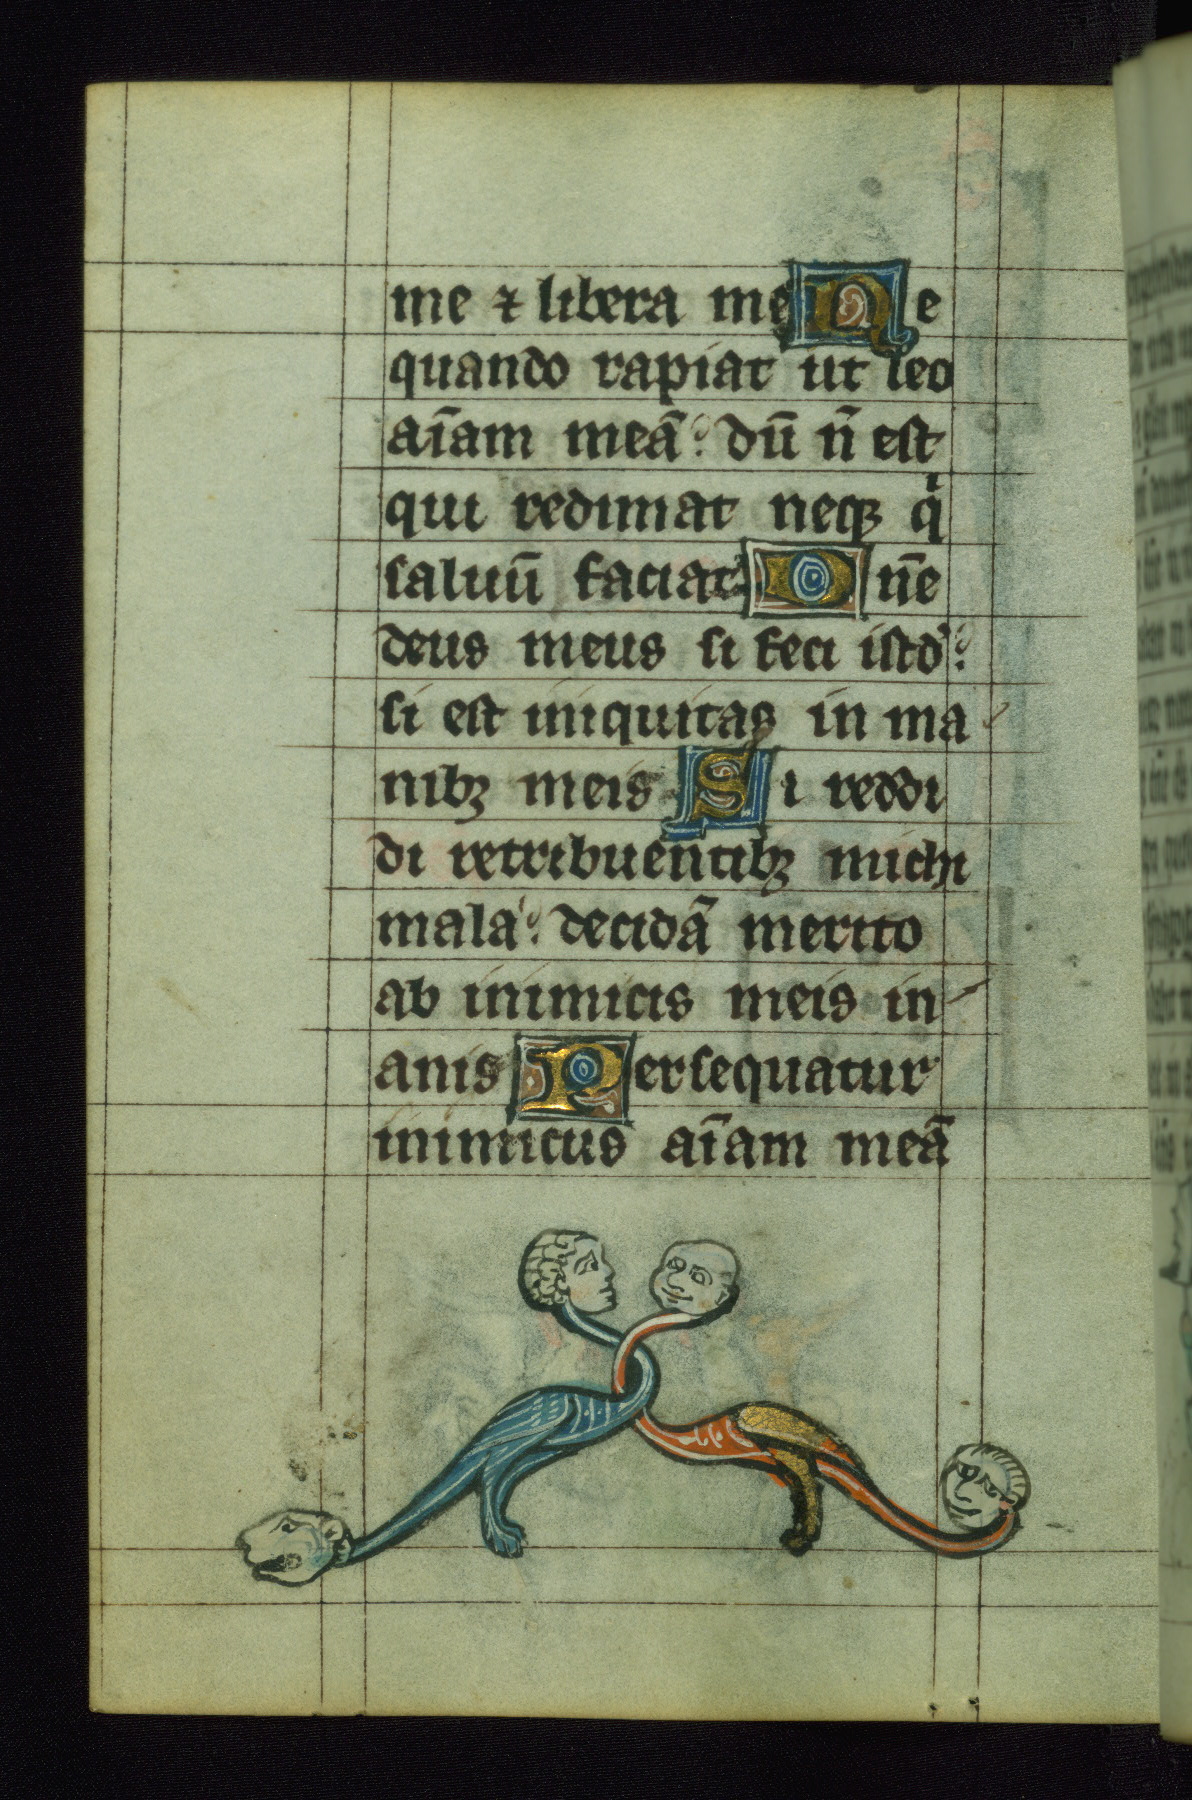 me ⁊ libera me Ne
quando rapiat ut leo
aīam meā: dū n̄ est
qui redimat neqꝫ qͥ
saluū faciat Dn̄e
deus meus si feci istd̓:
si est iniquitas in ma
nibꝫ meis Si reddi
di retribuentibꝫ michi
mala: decidā merito
ab inimicis meis in
anis Persequatur
inimicus aīam meā